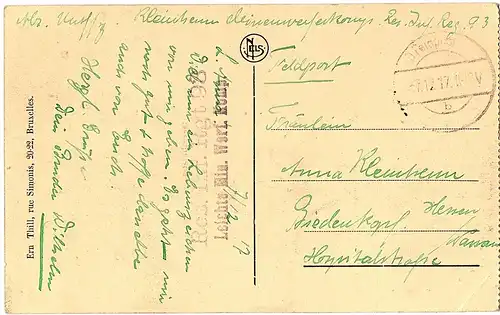 Abs. Untffz Kleinhenn Minenwerferkomp. Res. Inf. Reg. 93
Feldpost
NELS
12.17.
b
Fräulein
Anna Kleinhenn
Biedenkopf
Hessen
Nassau
Hospitalstraße
Leichte Min. Werf. Komp.
Res. Inf. Reg.
7/12 17
Dich nun ein Lebenszeichen
von mir geben. Es geht mir
noch gut & hoffe dasselbe
auch von Euch.
Herzl. Grüße
Dein Bruder Wilhelm
Ern Thill, rue Simonis, 20-22, Bruxelles.